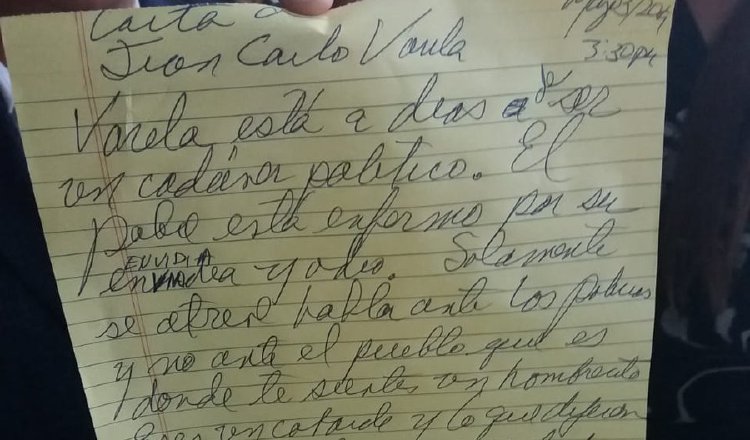 Carta a
Mayo/2019
Juan Carlo Varela
3:30pm
Varela está a dias de ser
un cadáver politico. El
pobre está enfermo por su
ENVIDIA
y odio. Solamente
se atreve habla ante los
y no ante el pueblo que es
donde te sientes un hombrecito
Eres un cobarde y lo que dijeron